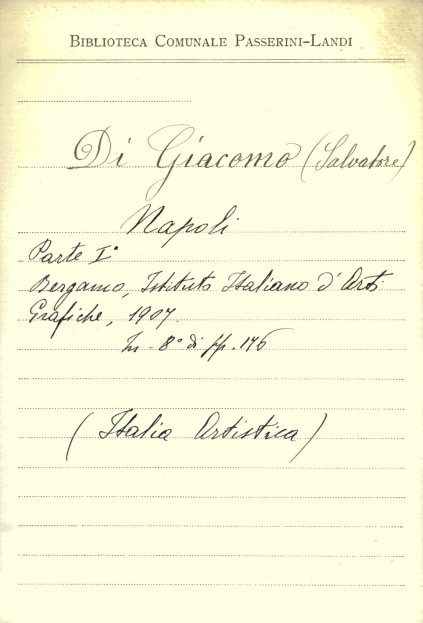 BIBLIOTECA COMUNALE PASSERINI-LANDI
Di Giacomo (Salvatore)
Napoli
Parte I°
Bergamo, Istituto Italiano d'Arti
Grafiche, 1907.
In-8° di pp. 176
(Italia Artistica)